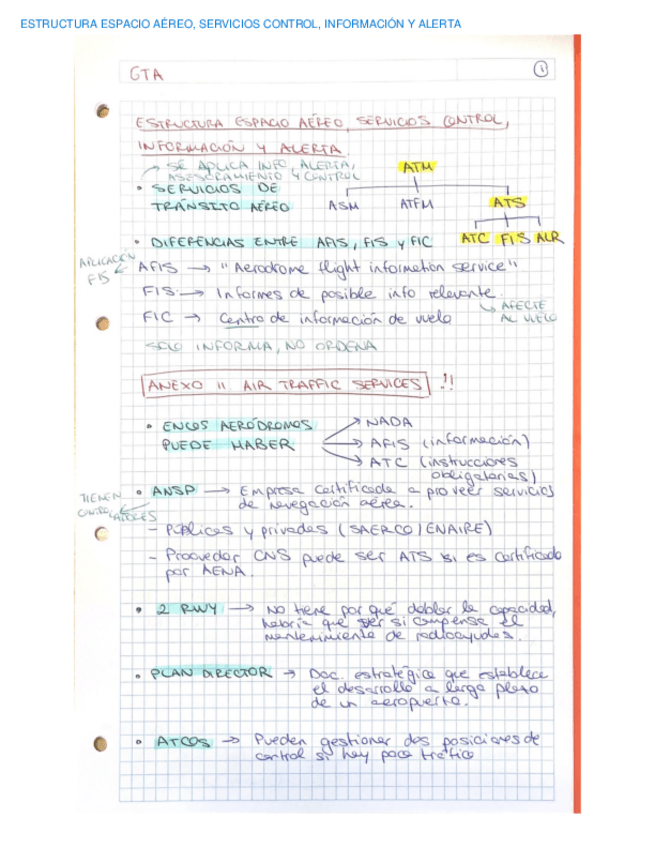 ESTRUCTURA ESPACIO AÉREO, SERVICIOS CONTROL, INFORMACIÓN Y ALERTA
GTA
1
ESTRUCTURA ESPACIO AÉREO, SERVICIOS CONTROL,
INFORMACIÓN Y ALERTA
SE APLICA INFO, ALERTA,
ASESORAMIENTO Y CONTROL
ATM
• SERVICIOS DE
TRÁNSITO AÉREO
ASM ATFM ATS
ATC FIS ALR
• DIFERENCIAS ENTRE AFIS, FIS y FIC
APLICACIÓN
FIS
AFIS → "Aerodrome flight information service"
FIS → Informes de posible info relevante
AFECTE
AL VUELO
FIC → Centro de información de vuelo
SOLO INFORMA, NO ORDENA
ANEXO 11 AIR TRAFFIC SERVICES !!
• EN LOS AERÓDROMOS
PUEDE HABER
→ NADA
→ AFIS (información)
→ ATC (instrucciones
obligatorias)
TIENEN
CONTROLADORES
• ANSP → Empresa certificada a proveer servicios
de navegación aérea.
- Públicos y privados (SAERCO/ENAIRE)
- Proovedor CNS puede ser ATS si es certificado
por AENA.
• 2 RWY → No tiene por qué doblar la capacidad,
habría que ver si compensa el
mantenimiento de radioayudas.
• PLAN DIRECTOR → Doc. estratégico que establece
el desarrollo a largo plazo
de un aeropuerto.
• ATCOS → Pueden gestionar dos posiciones de
control si hay poco tráfico